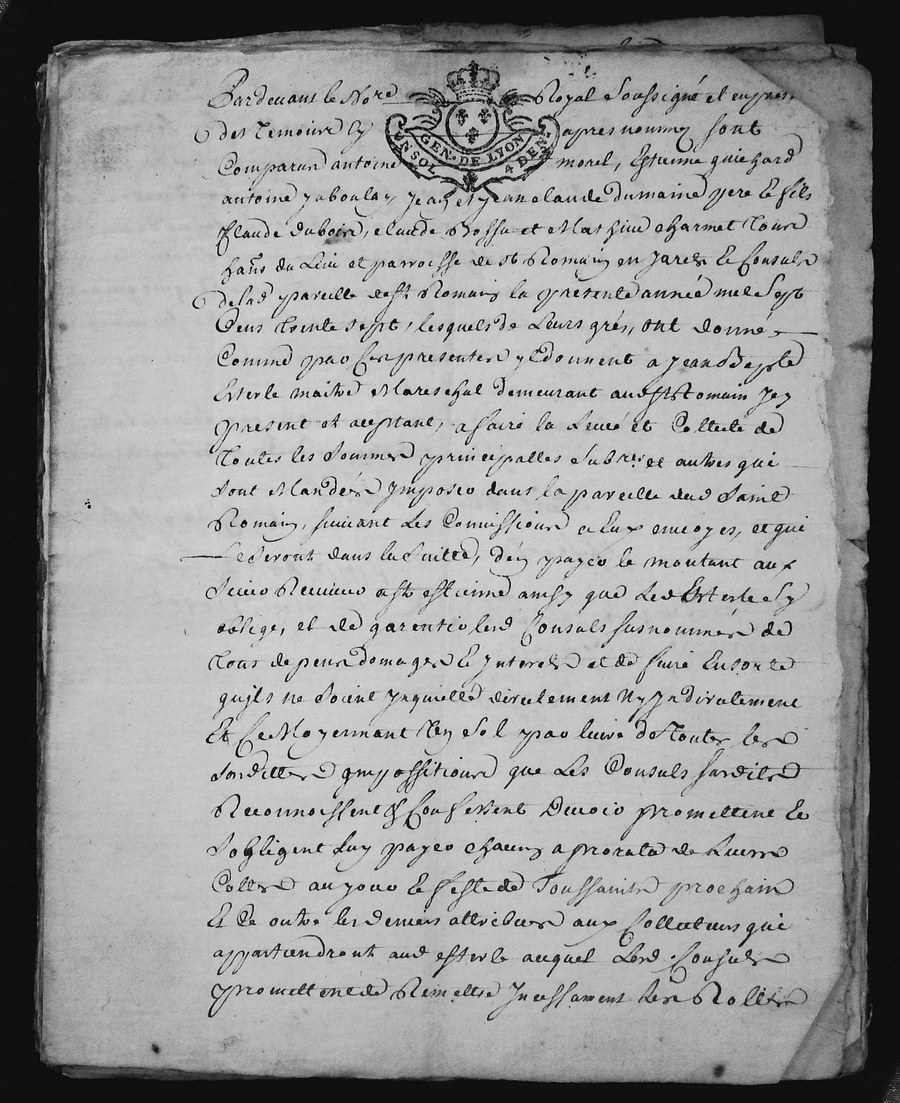 Pardevant le No.re Royal Soussigné et en pres.
GEN. DE LYON
UN SOL 4 DEN.
des temoins cy apres nommes sont
Comparus antoine morel, Estienne guichard
antoine jaboulay jean et jean claude dumaine pere et fils
Claude dubois, claude Bossu et Mathieu charmet tous
du Lieu et parroisse de st Romain en jarets et Consuls
de lad parcelle de st Romain la presente année mil Sept
Cens trente sept, lesquels de Leurs grés, ont donné
Comme par Ces presentes ils donnent a jean Baptiste
Esterle maitre Mareschal demeurant aud st Romain Icy
present et aceptant, a faire la Leveé et Collecte de
toutes les Sommes principalles Subres. et autres qui
Sont Mandées Imposeés dans la parcelle dud Saint
Romain, suivant Les Comissions a Eux envoyes, et qui
Le Seront dans la Suitte, d'en payer le montant aux
Sieurs Receveurs a st estienne ainsy que Led Esterle sy
oblige, et de garentir lesd Consuls susnommés de
tous depens domages Et Interets et de faire Ensorte
quils ne Soient Inquietté directement Ny Indirectement
Et Ce Moyennant Un Sol par livre de toutes les
Susdittes Impossitions que Les Consuls susdits
Reconnoissent & Confessent Devoir promettent Et
Sobligent Luy payer chacun a prorata de Leurs
Cottes au jour Et feste de Toussaints prochain
Et De outre les deniers attribues aux Collecteurs qui
appartiendront aud esterle auquel Lesd Consuls
promettent de Remettre Incessament Les Rolles